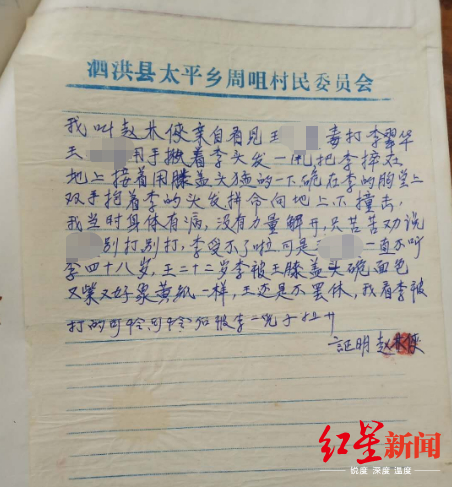 泗洪县太平乡周咀村民委员会
我叫赵林侠亲自看见王 毒打李翠华
王 用手揪着李头发一甩把李摔在
地上接着用膝盖头猛的一下跪在李的胸堂上
双手抱着李的头发拼命向地上下撞击，
我当时身体有病，没有力量解开，只苦苦劝说
别打别打，李受不了啦可是王 一直不听
李四十八岁，王二十二岁李被王膝盖头跪面色
又紫又好象黄纸一样，王还是不罢休，我看李被
打的可怜可怜 被李二
証明 赵林侠
红星新闻
锐度 深度 温度